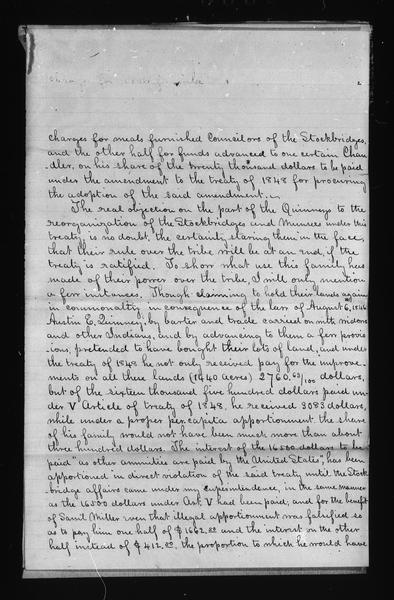 2
charges for meals furnished Councilors of the Stockbridges,
and the other half for funds advanced to one certain Chan
dler, on his share of the twenty thousand dollars to be paid
under the amendment to the treaty of 1848 for procuring
the adoption of the said amendment.
The real objection on the part of the Quinneys to the
reorganization of the Stockbridges and Munsees under this
treaty, is no doubt, the certainty staring them in the face,
that their rule over the tribe will be at an end, if the
treaty is ratified. To show what use this family has
made of their power over the tribe, I will only mention
a few instances. Though claiming to hold their lands again
in commonalty in consequence of the law of August 6, 1846
Austin E. Quinney, by barter and trade carried on with
and other Indians, and by advancing to them a few provis
ions, pretended to have bought their lots of land, and under
the treaty of 1848 he not only received pay for the improve-
ments on all these lands (1440 acres) 2760.63/100 dollars,
but of the sixteen thousand five hundred dollars paid un
der V Article of treaty of 1848, he received 3083 dollars,
while under a proper per capita apportionment the share
of his family would not have been much more than about
three hundred dollars. The interest of the 16500 dollars to be
paid "as other annuities are paid by the United States", has been
apportioned in direct violation of the said treaty until the Stock
bridge affairs came under my superintendence, in the same manner
as the 16500 dollars under Art. V had been paid, and for the benefit
of Saml Miller even that illegal apportionment was falsified so
as to pay him one half of $1662.00 and the interest on the other
half instead of $412.00, the proportion to which he would have